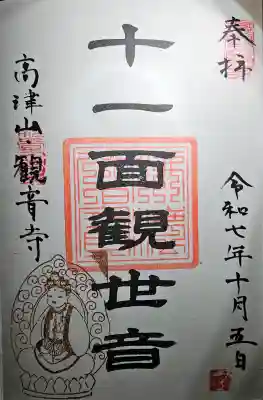 奉拝
令和七年十月五日
十一面観世音
高津山観音寺